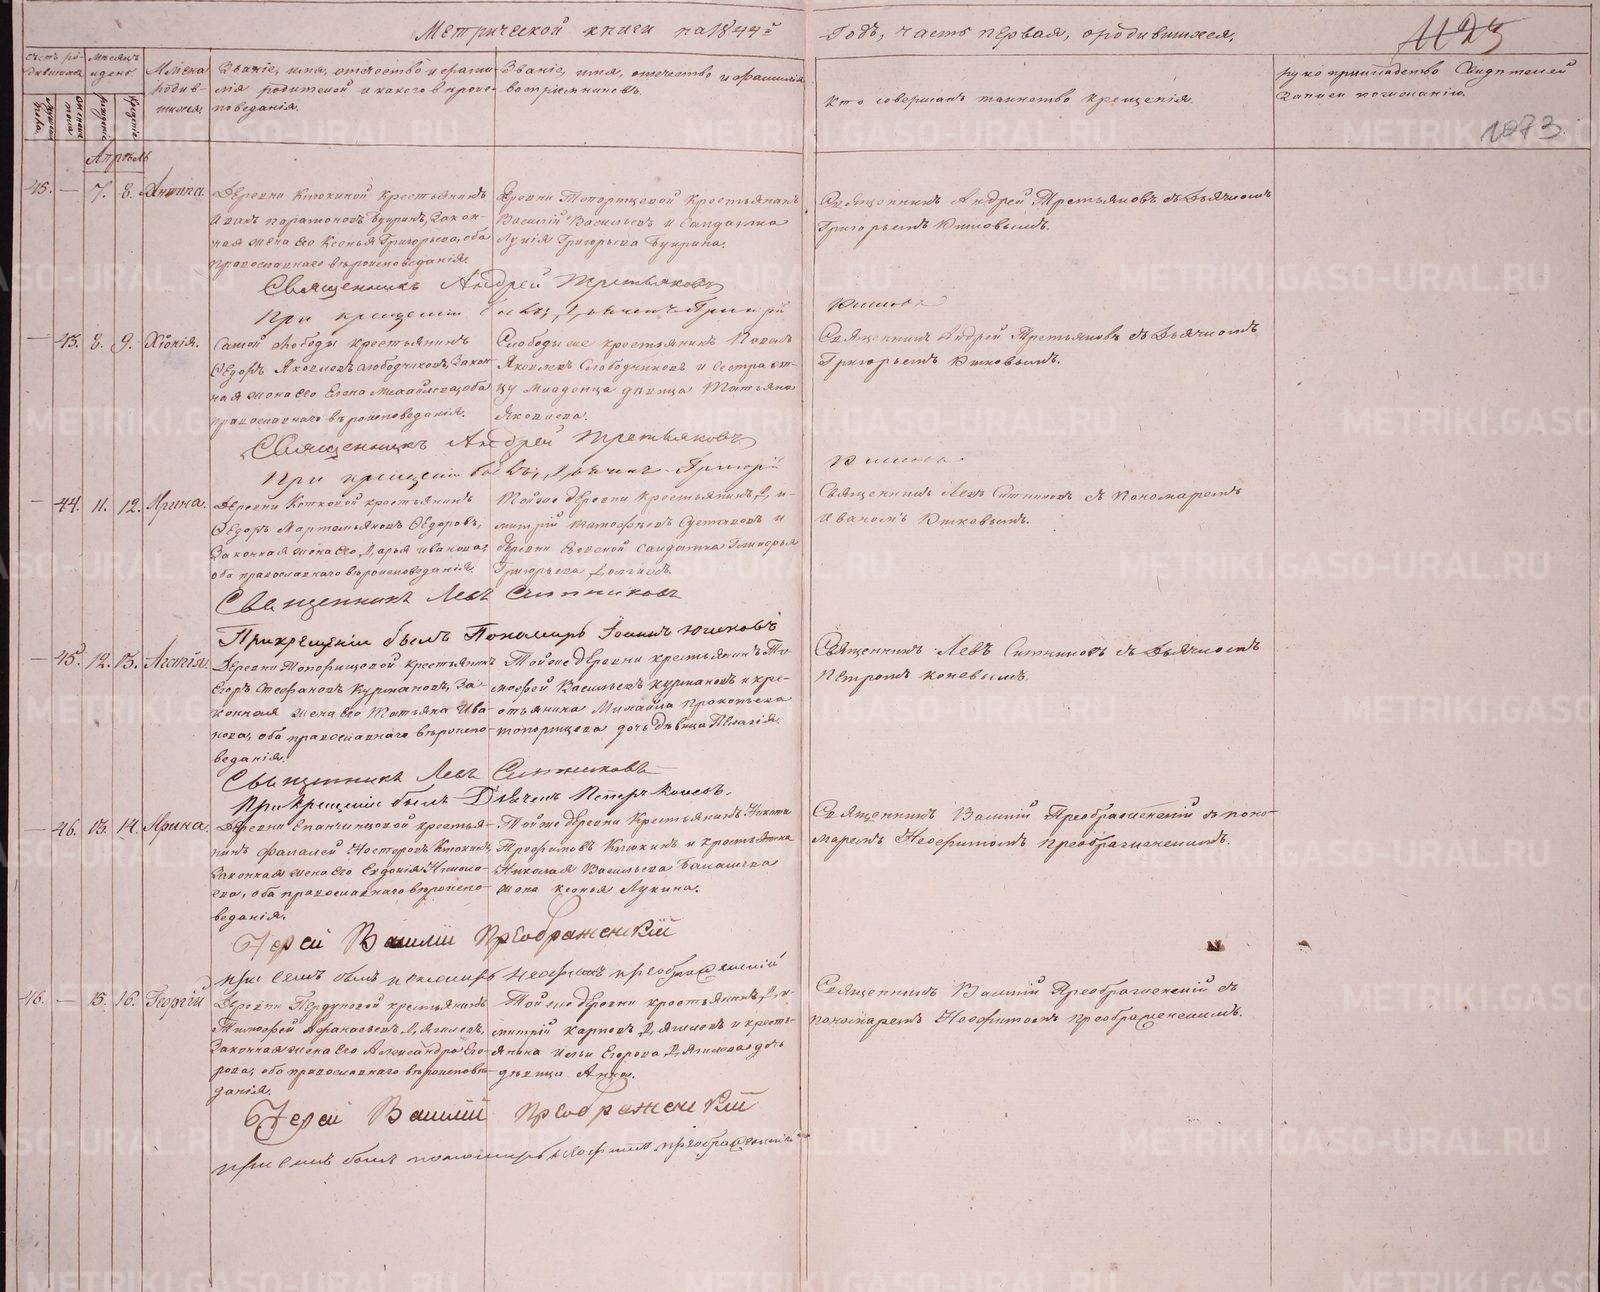 Метрической книги на 1844й Годъ, часть первая, о родившихся,
1125
1073.
Счетъ ро-
дившихся
Мѣсяцъ
и день
Имена
родив-
шихся.
Званіе, имя, отечество и фами-
лія родителей и какого вѣроис-
поведанія.
Званіе, имя, отечество и фамилія
воспріемниковъ.
Кто совершалъ таинство крещенія.
рукоприкладство свидѣтелей
записи по желанію.
мужеска
пола.
женска
пола
рожденія
крещенія
Апрѣль
45. — 7. 8. Антипа.
Деревни Клюкиной крестьянинъ
Иванъ Парамоновъ Букринъ, закон-
ная жена его Ксенья Григорьева, оба
православнаго вѣроисповеданія.
Деревни Топорищевой крестьянинъ
Василій Васильевъ и солдатка
Лукія Григорьева Букрина.
Священникъ Андрей Третьяковъ съ Дьячкомъ
Григорьемъ Юшковымъ.
Священникъ Андрей Третьяковъ
При крещеніи былъ Дьячекъ Григорій Юшковъ
— 43. 8. 9. Хіонія.
Самой слободы крестьянинъ
Ѳедоръ Яковлевъ Слободчиковъ, закон-
ная жена его Елена Михайлова, оба
православнаго вѣроисповеданія.
Слободы же крестьянинъ
Яковлевъ Слободчиковъ и сестра от-
цу младенца дѣвица Татьяна
Яковлева.
Священникъ Андрей Третьяковъ съ Дьячкомъ
Григорьемъ Юшковымъ.
Священникъ Андрей Третьяковъ
При крещеніи былъ Дьячекъ Григорій Юшковъ
— 44. 11. 12. Ирина.
Деревни крестьянинъ
Ѳедоръ Мартемьяновъ Ѳедоровъ,
законная жена его Дарья Иванова,
оба православнаго вѣроисповеданія.
Той же деревни крестьянинъ Ди-
митрій Тимофеевъ и
деревни солдатка Гликерья
Григорьева
Священникъ Левъ Ситниковъ съ Пономаремъ
Иваномъ Юшковымъ.
Священникъ Левъ Ситниковъ
При крещеніи былъ Пономарь Іоаннъ Юшковъ
— 45. 12. 13. Агапія.
Деревни Топорищевой крестьянинъ
Егоръ Стефановъ Курмановъ, за-
конная жена его Татьяна Ива-
нова, оба православнаго вѣроиспо-
веданія.
Той же деревни крестьянинъ Ти-
мофей Васильевъ Курмановъ и кре-
стьянина Михайла Прокопьева
Топорищева дочь дѣвица Пелагія.
Священникъ Левъ Ситниковъ съ Дьячкомъ
Петромъ Коневымъ.
Священникъ Левъ Ситниковъ
При крещеніи былъ Дьячекъ Петръ Коневъ.
— 46. 13. 14. Ирина.
Деревни Епанчинцовой крестья-
нинъ Фалалей Несторовъ Клюкинъ,
законная жена его Евдокія
оба православнаго вѣроиспо-
веданія.
Той же деревни крестьянинъ Никита
Трофимовъ Клюкинъ и крестьянина
Николая Васильева Балашева
жена Ксенья Лукина.
Священникъ Василій Преображенскій съ поно-
маремъ Неофитомъ Преображенскимъ.
Іерей Василій Преображенскій
при семъ былъ пономарь Неофитъ Преображенскій
46. — 15. 16. Георгій
Деревни крестьянинъ
Тимофей Афанасьевъ
законная жена его Александра Его-
рова, оба православнаго вѣроиспове-
данія.
Той же деревни крестьянинъ Ди-
митрій Карповъ и кресть-
янина Ильи Егорова дочь
дѣвица Анна.
Священникъ Василій Преображенскій съ
пономаремъ Неофитомъ Преображенскимъ.
Іерей Василій Преображенскій
при семъ былъ пономарь Неофитъ Преображенскій